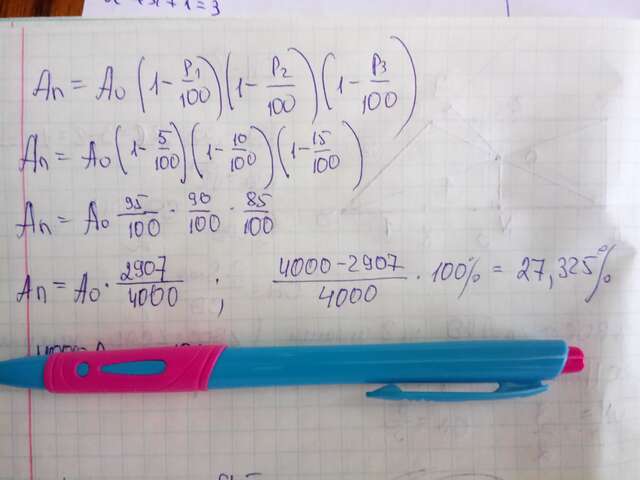 An = A0 (1 - p1/100)(1 - p2/100)(1 - p3/100)
An = A0 (1 - 5/100)(1 - 10/100)(1 - 15/100)
An = A0 95/100 · 90/100 · 85/100
An = A0 · 2907/4000 ; (4000 - 2907)/4000 · 100% = 27,325%